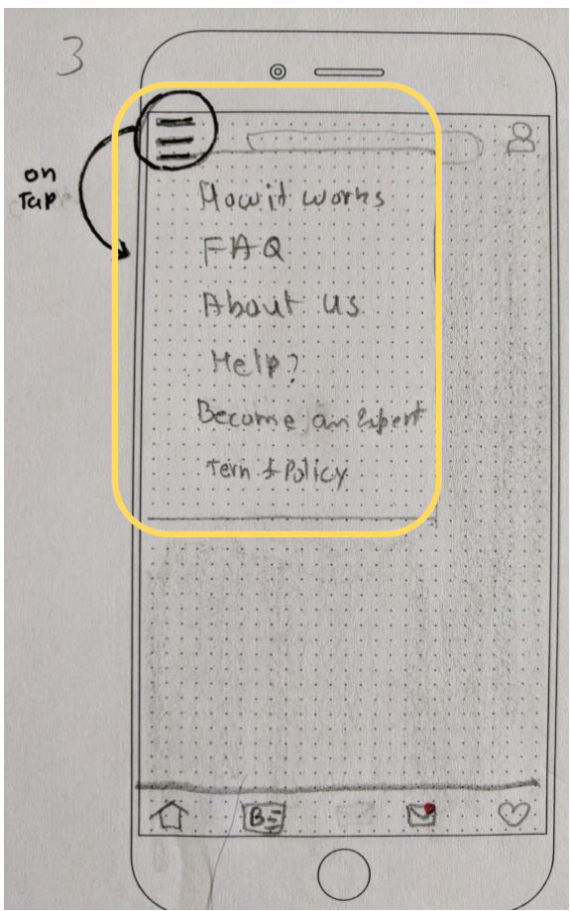 3
on
Tap
How it works
FAQ
About us
Help?
Become an Expert
Term & Policy
B